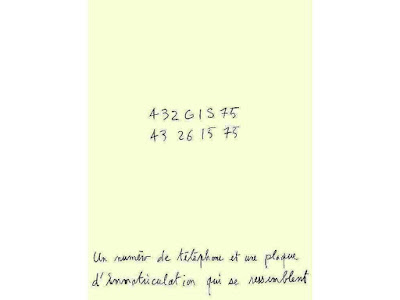 432 GIS 75
43 26 15 75
Un numéro de téléphone et une plaque
d'Immatriculation qui se ressemblent